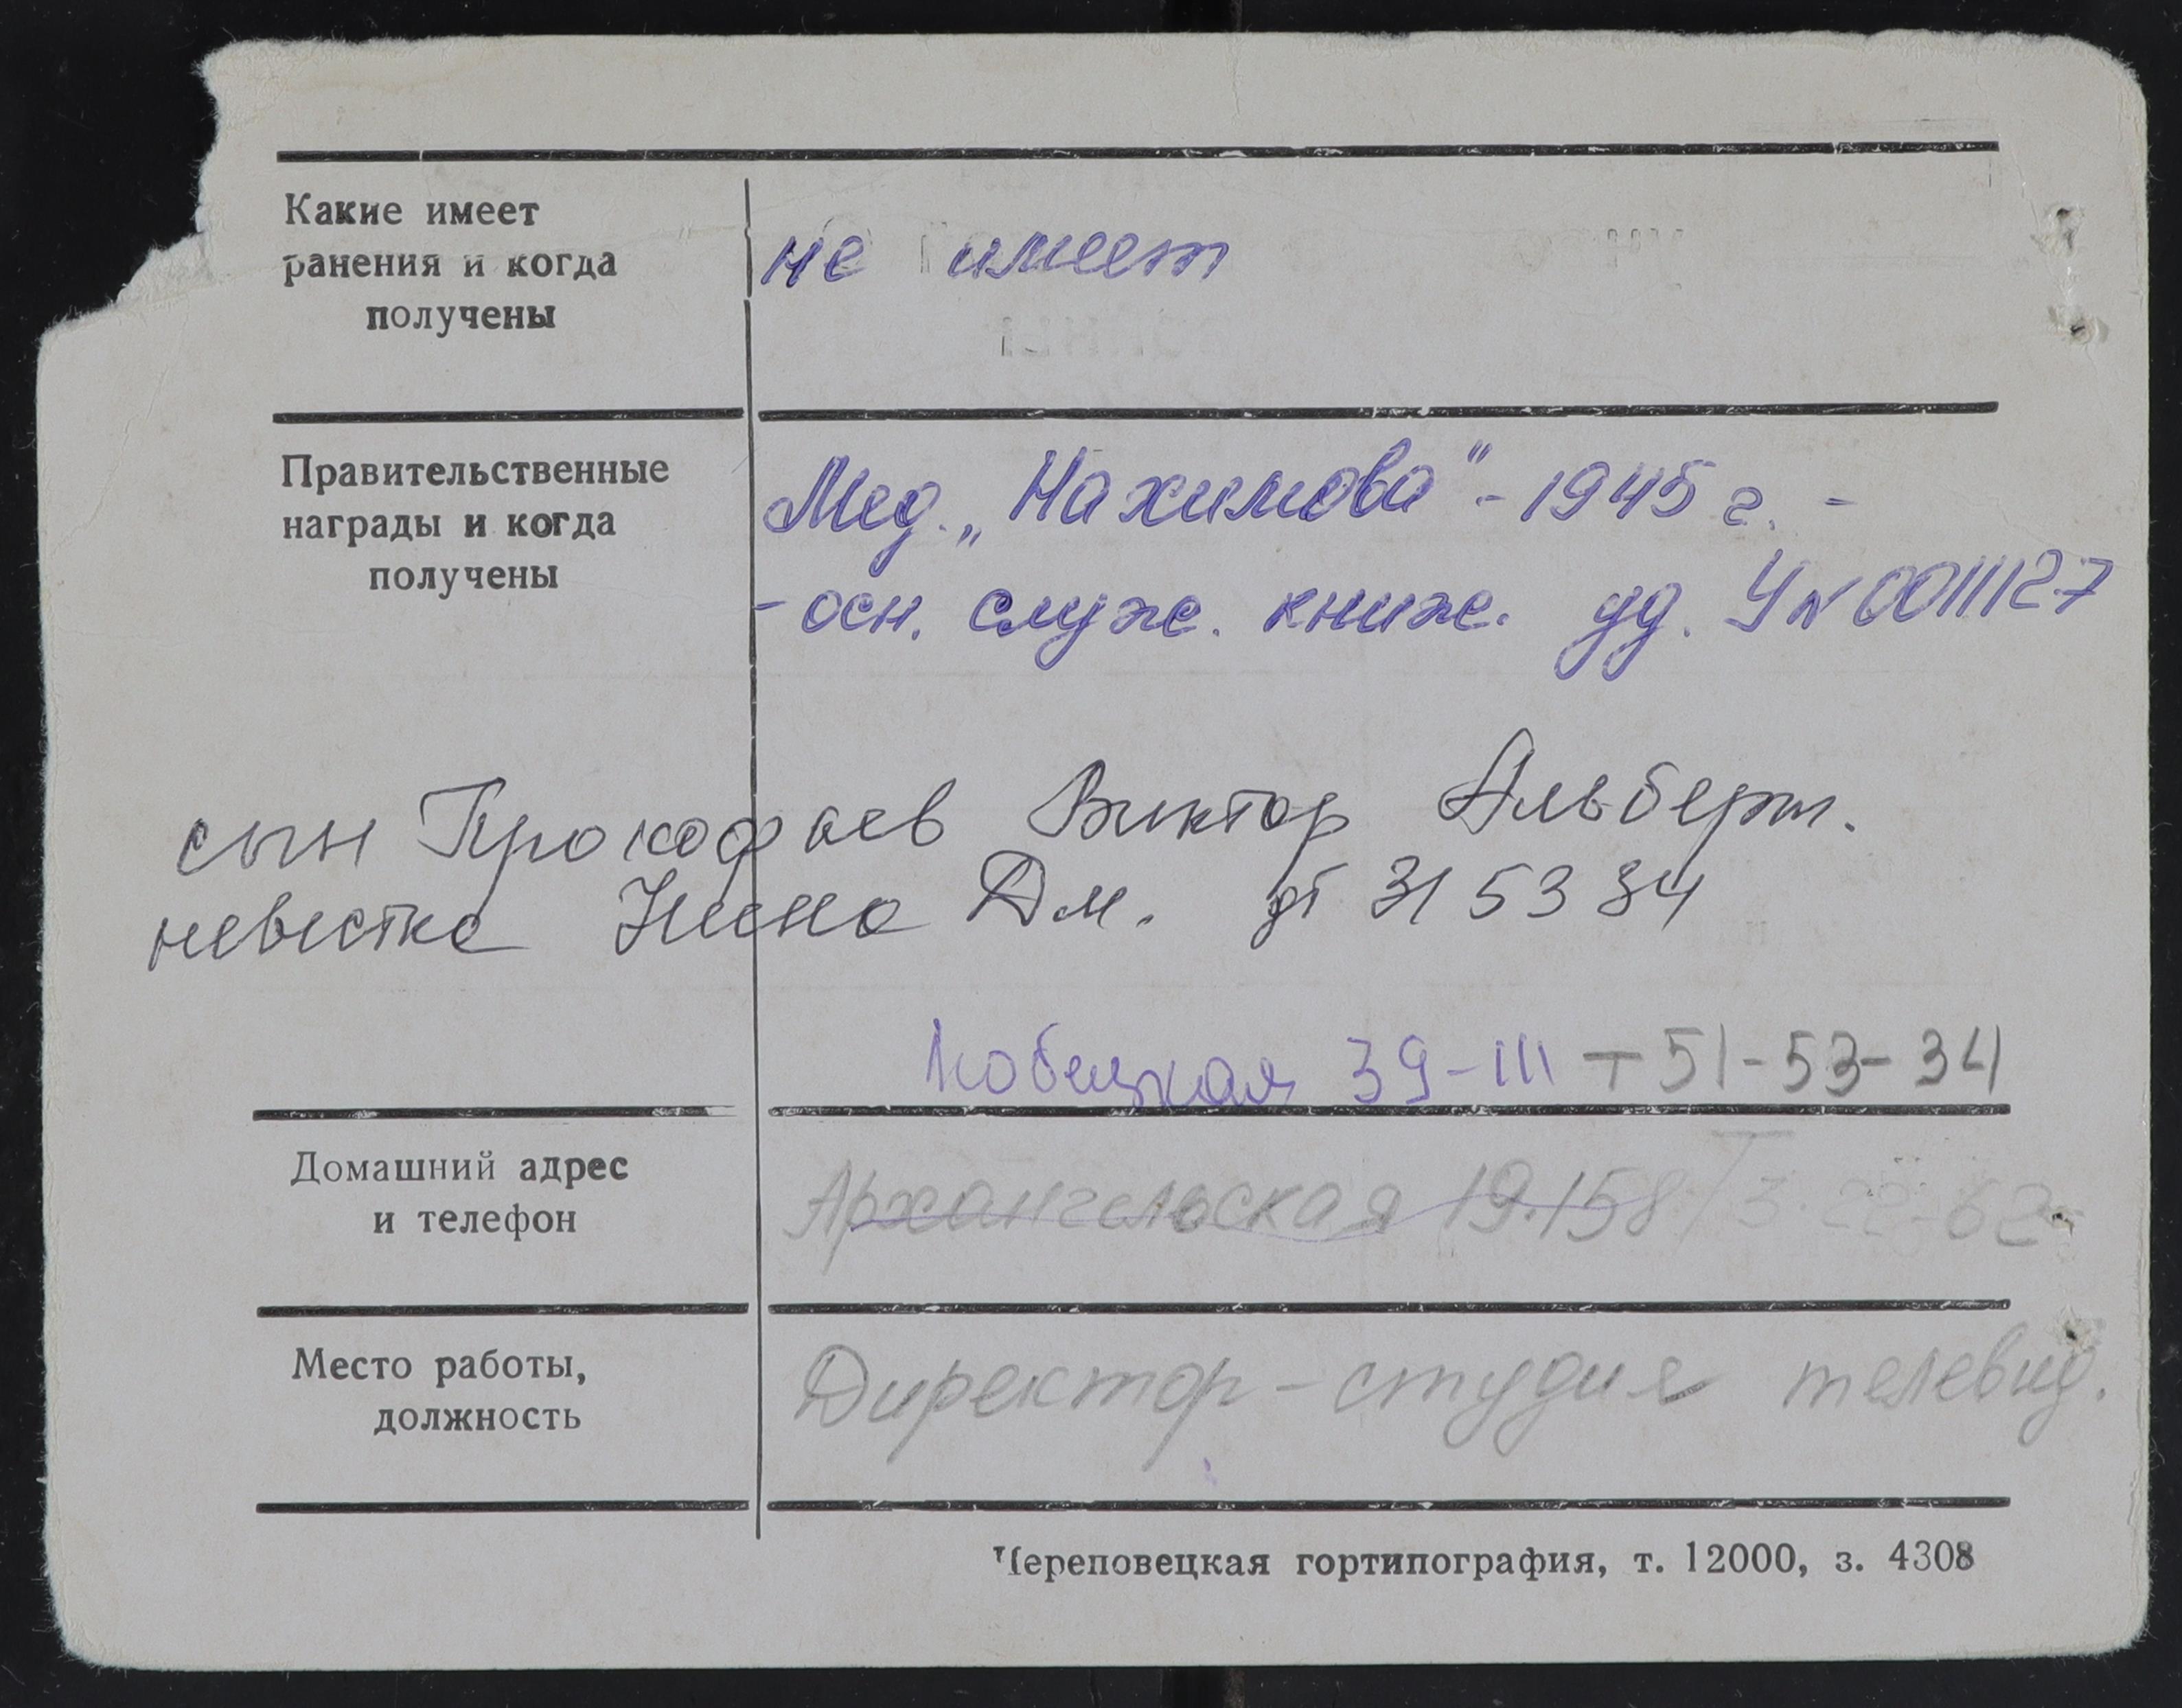 Какие имеет
ранения и когда
получены
не имеет
Правительственные
награды и когда
получены
Мед. „Нахимова" - 1945 г. -
- осн. служ. книж. уд. У № 0011127
сын Прокофьев Виктор Альберт.
невестка Нина Дм. дт 31 53 34
39-111 т 51-53-34
Домашний адрес
и телефон
Архангельская 19.158
Место работы,
должность
Директор - студия телевид.
Череповецкая гортипография, т. 12000, з. 4308